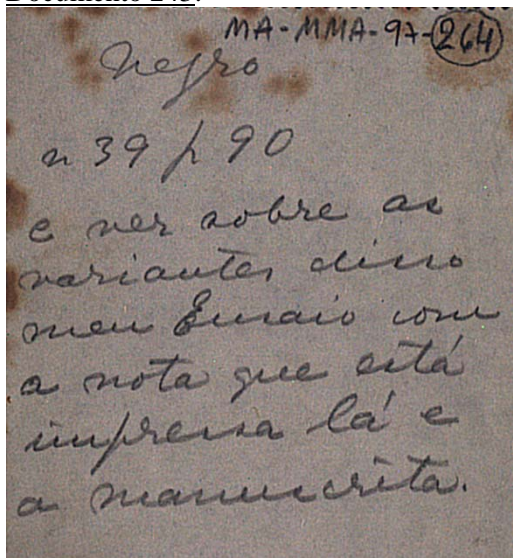 Documento 243:
MA-MMA-97-264
Negro
n 39 p 90
e ver sobre as
variantes disso
meu Ensaio com
a nota que está
impressa lá e
a manuscrita.